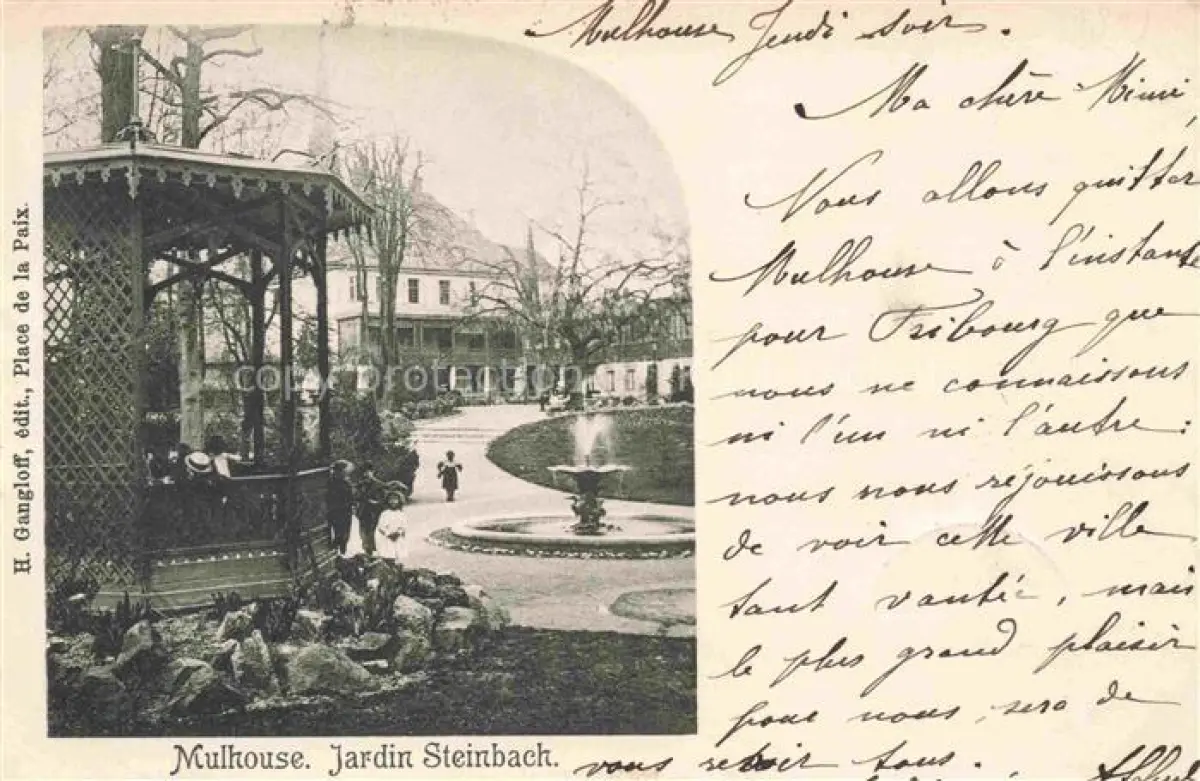 Mulhouse Jeudi soir.
Ma chère Mimi,
Nous allons quitter
Mulhouse à l'instant
pour Fribourg que
nous ne connaissons
ni l'un ni l'autre :
nous nous réjouissons
de voir cette ville
tant vantée, mais
le plus grand plaisir
pour nous, sera de
vous revoir tous.
H. Gangloff, édit., Place de la Paix.
copyright protection
Mulhouse. Jardin Steinbach.